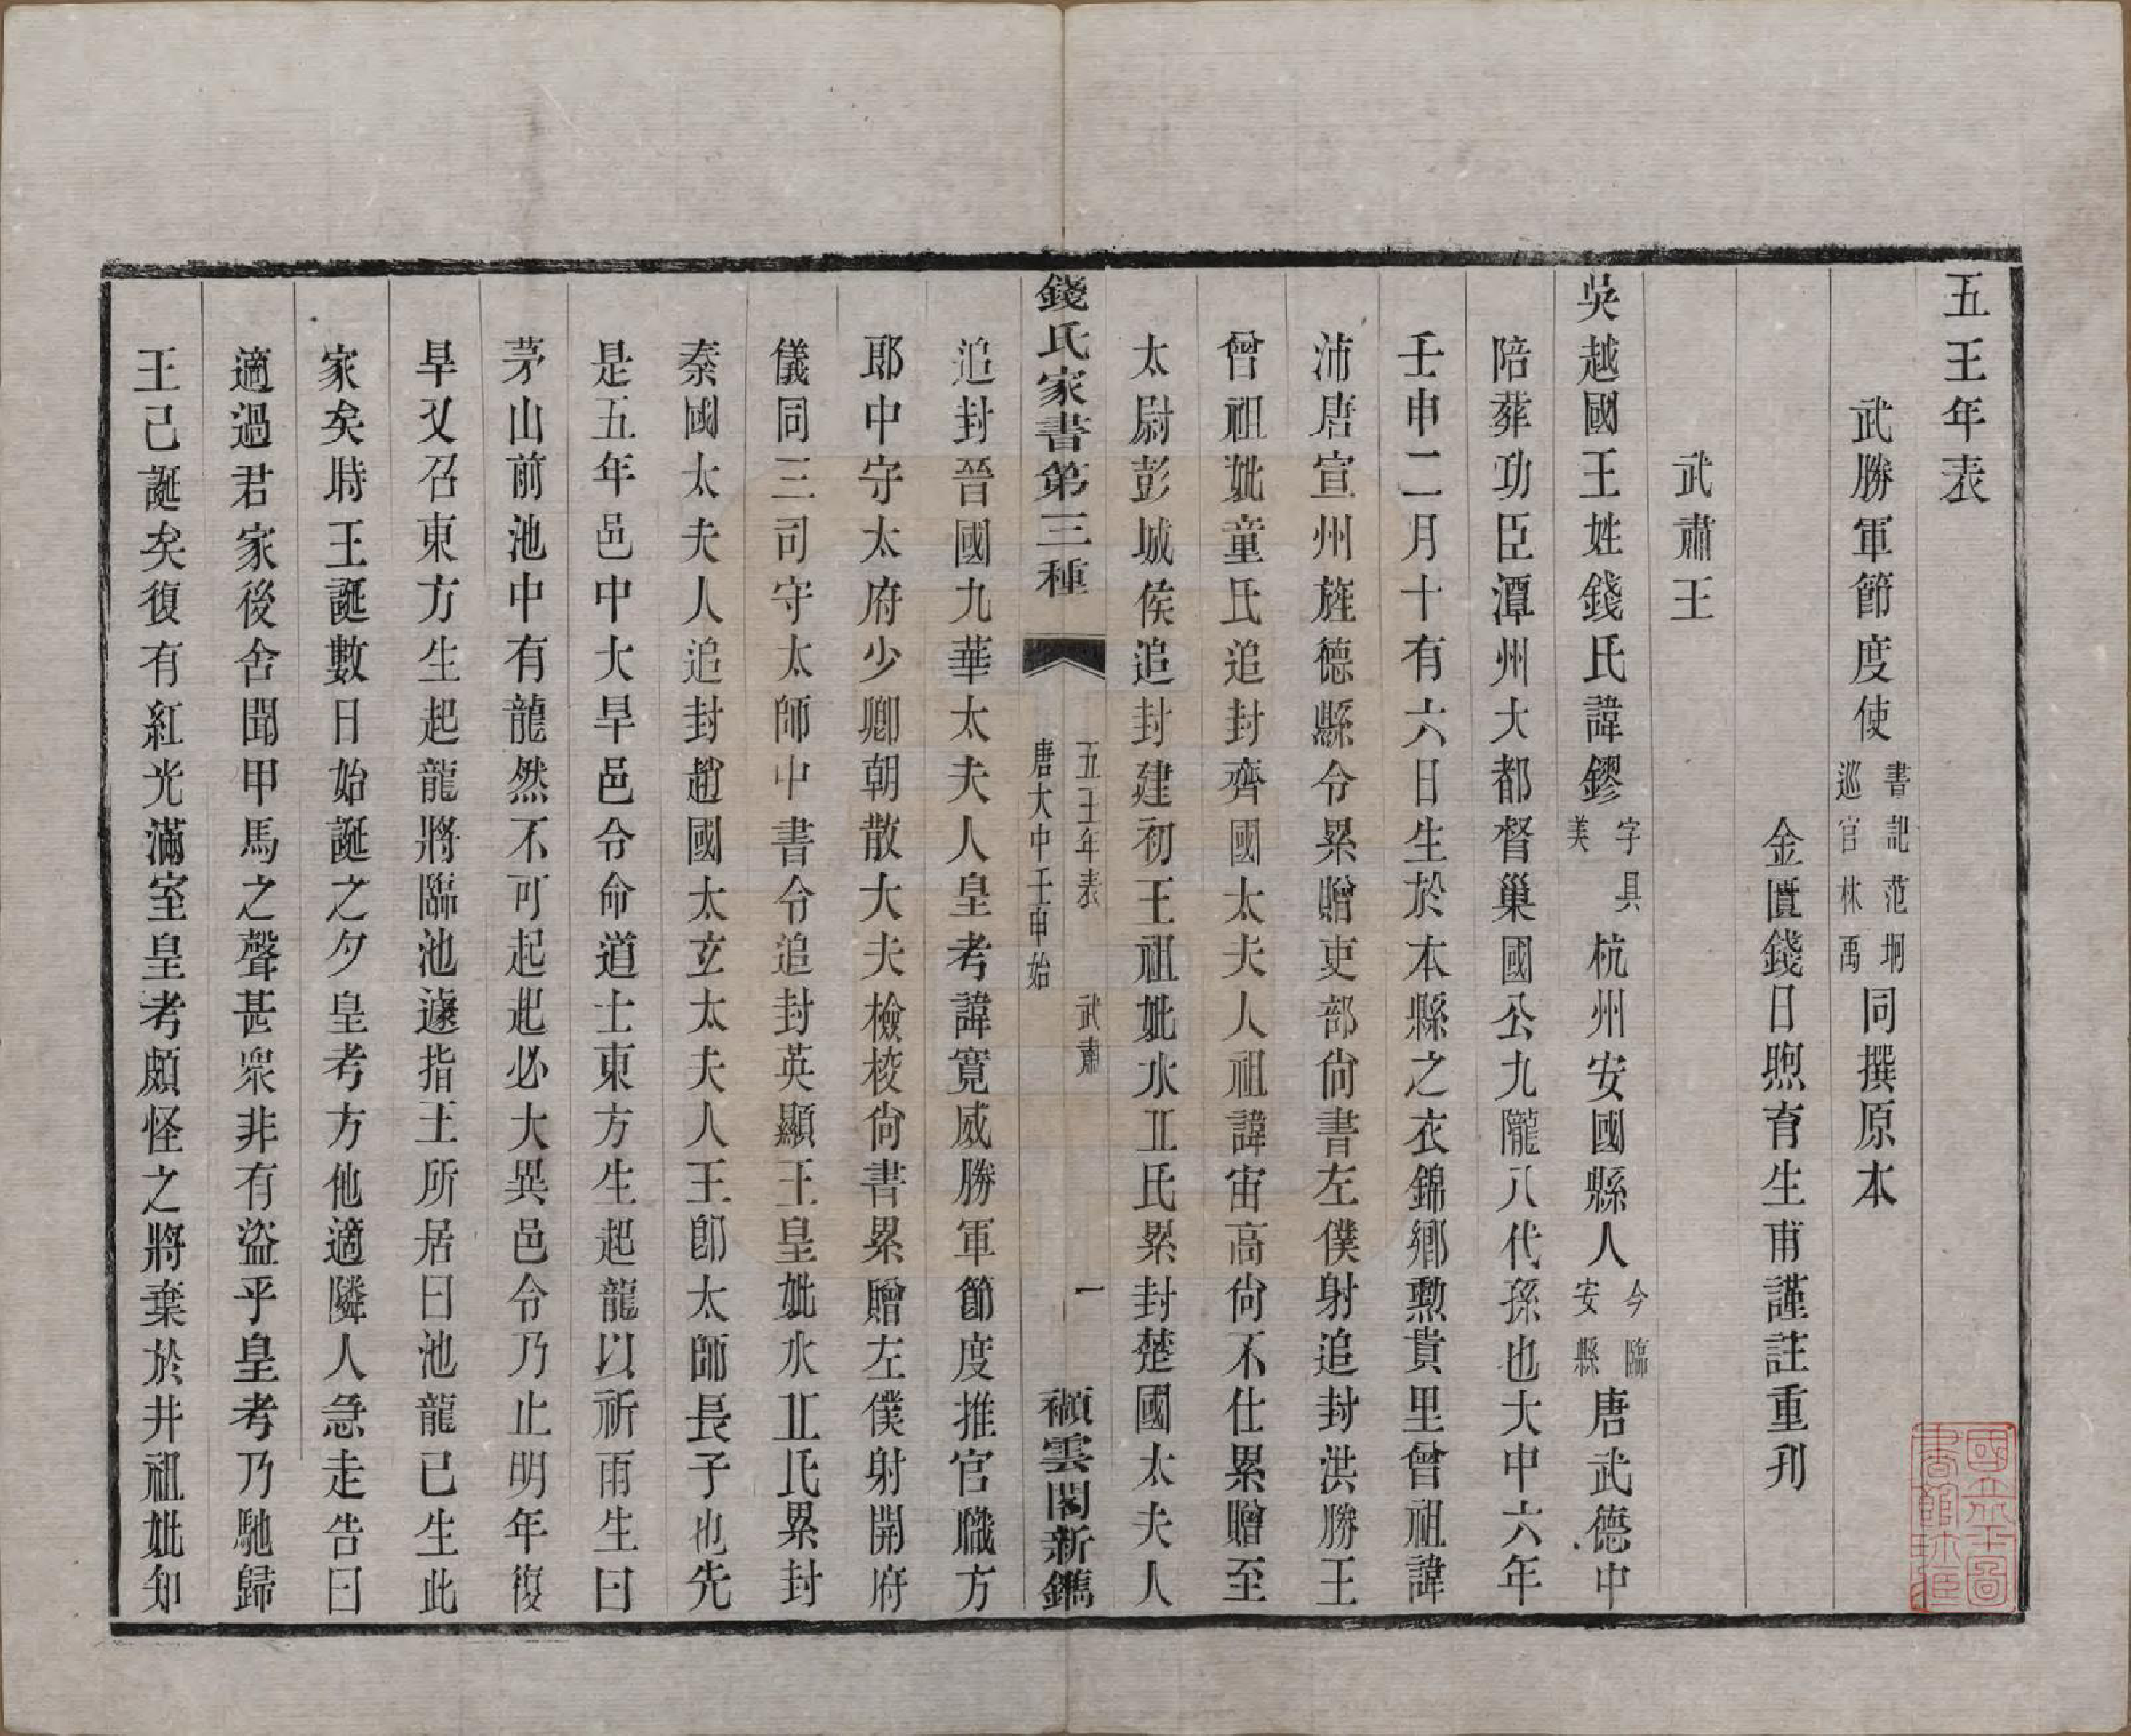 五王年表
武勝軍節度使書記范坰巡官林禹同撰原本
金匱錢日煦育生甫謹註重刋
武肅王
吳越國王姓錢氏諱鏐字具美杭州安國縣人今臨安縣唐武德中
陪葬功臣潭州大都督巢國公九隴八代孫也大中六年
壬申二月十有六日生於本縣之衣錦鄉勲貴里曾祖諱
沛唐宣州旌德縣令累贈吏部尙書左僕射追封洪勝王
曾祖妣童氏追封齊國太夫人祖諱宙高尙不仕累贈至
太尉彭城侯追封建初王祖妣水丘氏累封楚國太夫人
錢氏家書第三種
五王年表 武肅
唐大中壬申始
一
纈雲閣新鐫
追封晉國九華太夫人皇考諱寬威勝軍節度推官職方
郎中守太府少卿朝散大夫檢校尙書累贈左僕射開府
儀同三司守太師中書令追封英顯王皇妣水丘氏累封
秦國太夫人追封趙國太玄太夫人王卽太師長子也先
是五年邑中大旱邑令命道士東方生起龍以祈雨生曰
茅山前池中有龍然不可起起必大異邑令乃止明年復
旱又召東方生起龍將臨池遽指王所居曰池龍已生此
家矣時王誕數日始誕之夕皇考方他適隣人急走告曰
適過君家後舍聞甲馬之聲甚衆非有盜乎皇考乃馳歸
王已誕矣復有紅光滿室皇考頗怪之將棄於井祖妣知